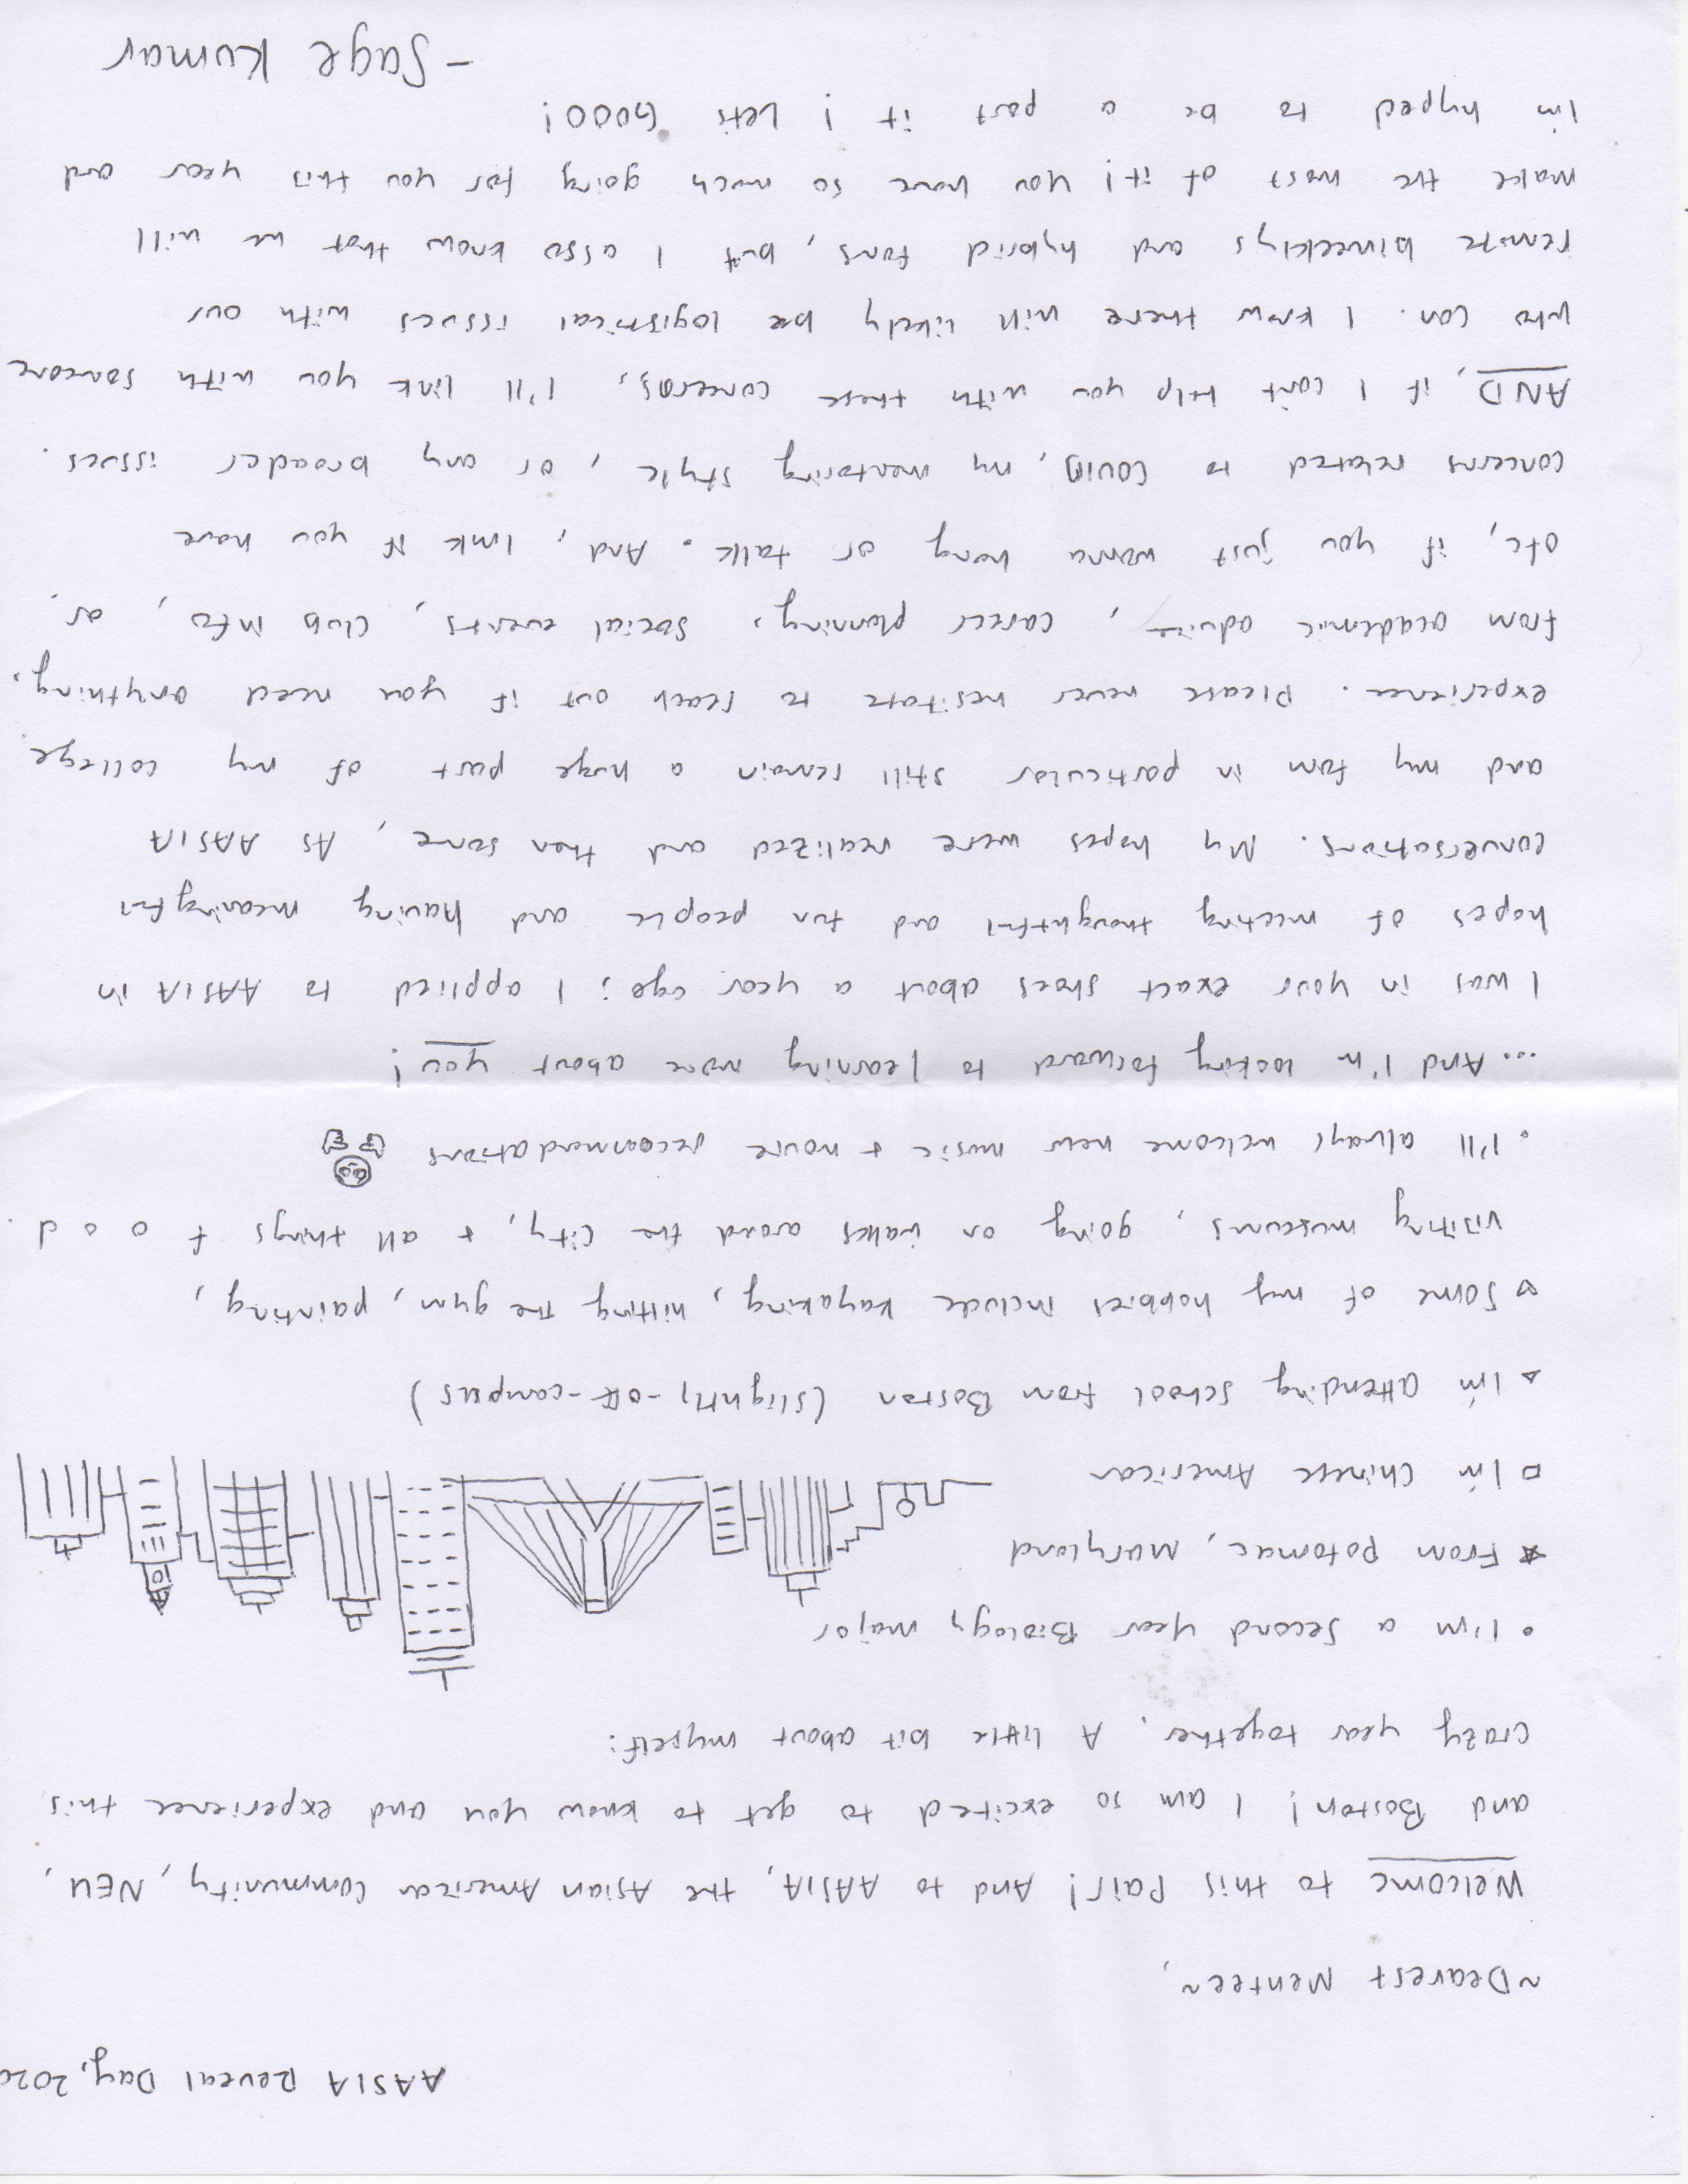 AASIA Reveal Day, 2020
~Dearest Mentee~,
Welcome to this Pair! And to AASIA, the Asian American Community, NEU,
and Boston! I am so excited to get to know you and experience this
crazy year together. A little bit about myself:
• I'm a Second year Biology major
★ From Potomac, Maryland
□ I'm Chinese American
△ I'm attending school from Boston (slightly-off-campus)
♡ Some of my hobbies include kayaking, hitting the gym, painting,
visiting museums, going on walks around the city, + all things f o o d.
• I'll always welcome new music + movie recommendations
... And I'm looking forward to learning more about you!
I was in your exact shoes about a year ago; I applied to AASIA in
hopes of meeting thoughtful and fun people and having meaningful
conversations. My hopes were realized and then some, As AASIA
and my fam in particular still remain a huge part of my college
experience. Please never hesitate to reach out if you need anything,
from academic advice, career planning, social events, club info, or,
ofc, if you just wanna hang or talk. And, lmk if you have
concerns related to COVID, my mentoring style, or any broader issues.
AND, if I can't help you with these concerns, I'll link you with someone
who can. I know there will likely be logistical issues with our
remote biweeklys and hybrid fams, but I also know that we will
make the most of it! You have so much going for you this year and
I'm hyped to be a part it! Let's GOOO!
- Sage Kumar